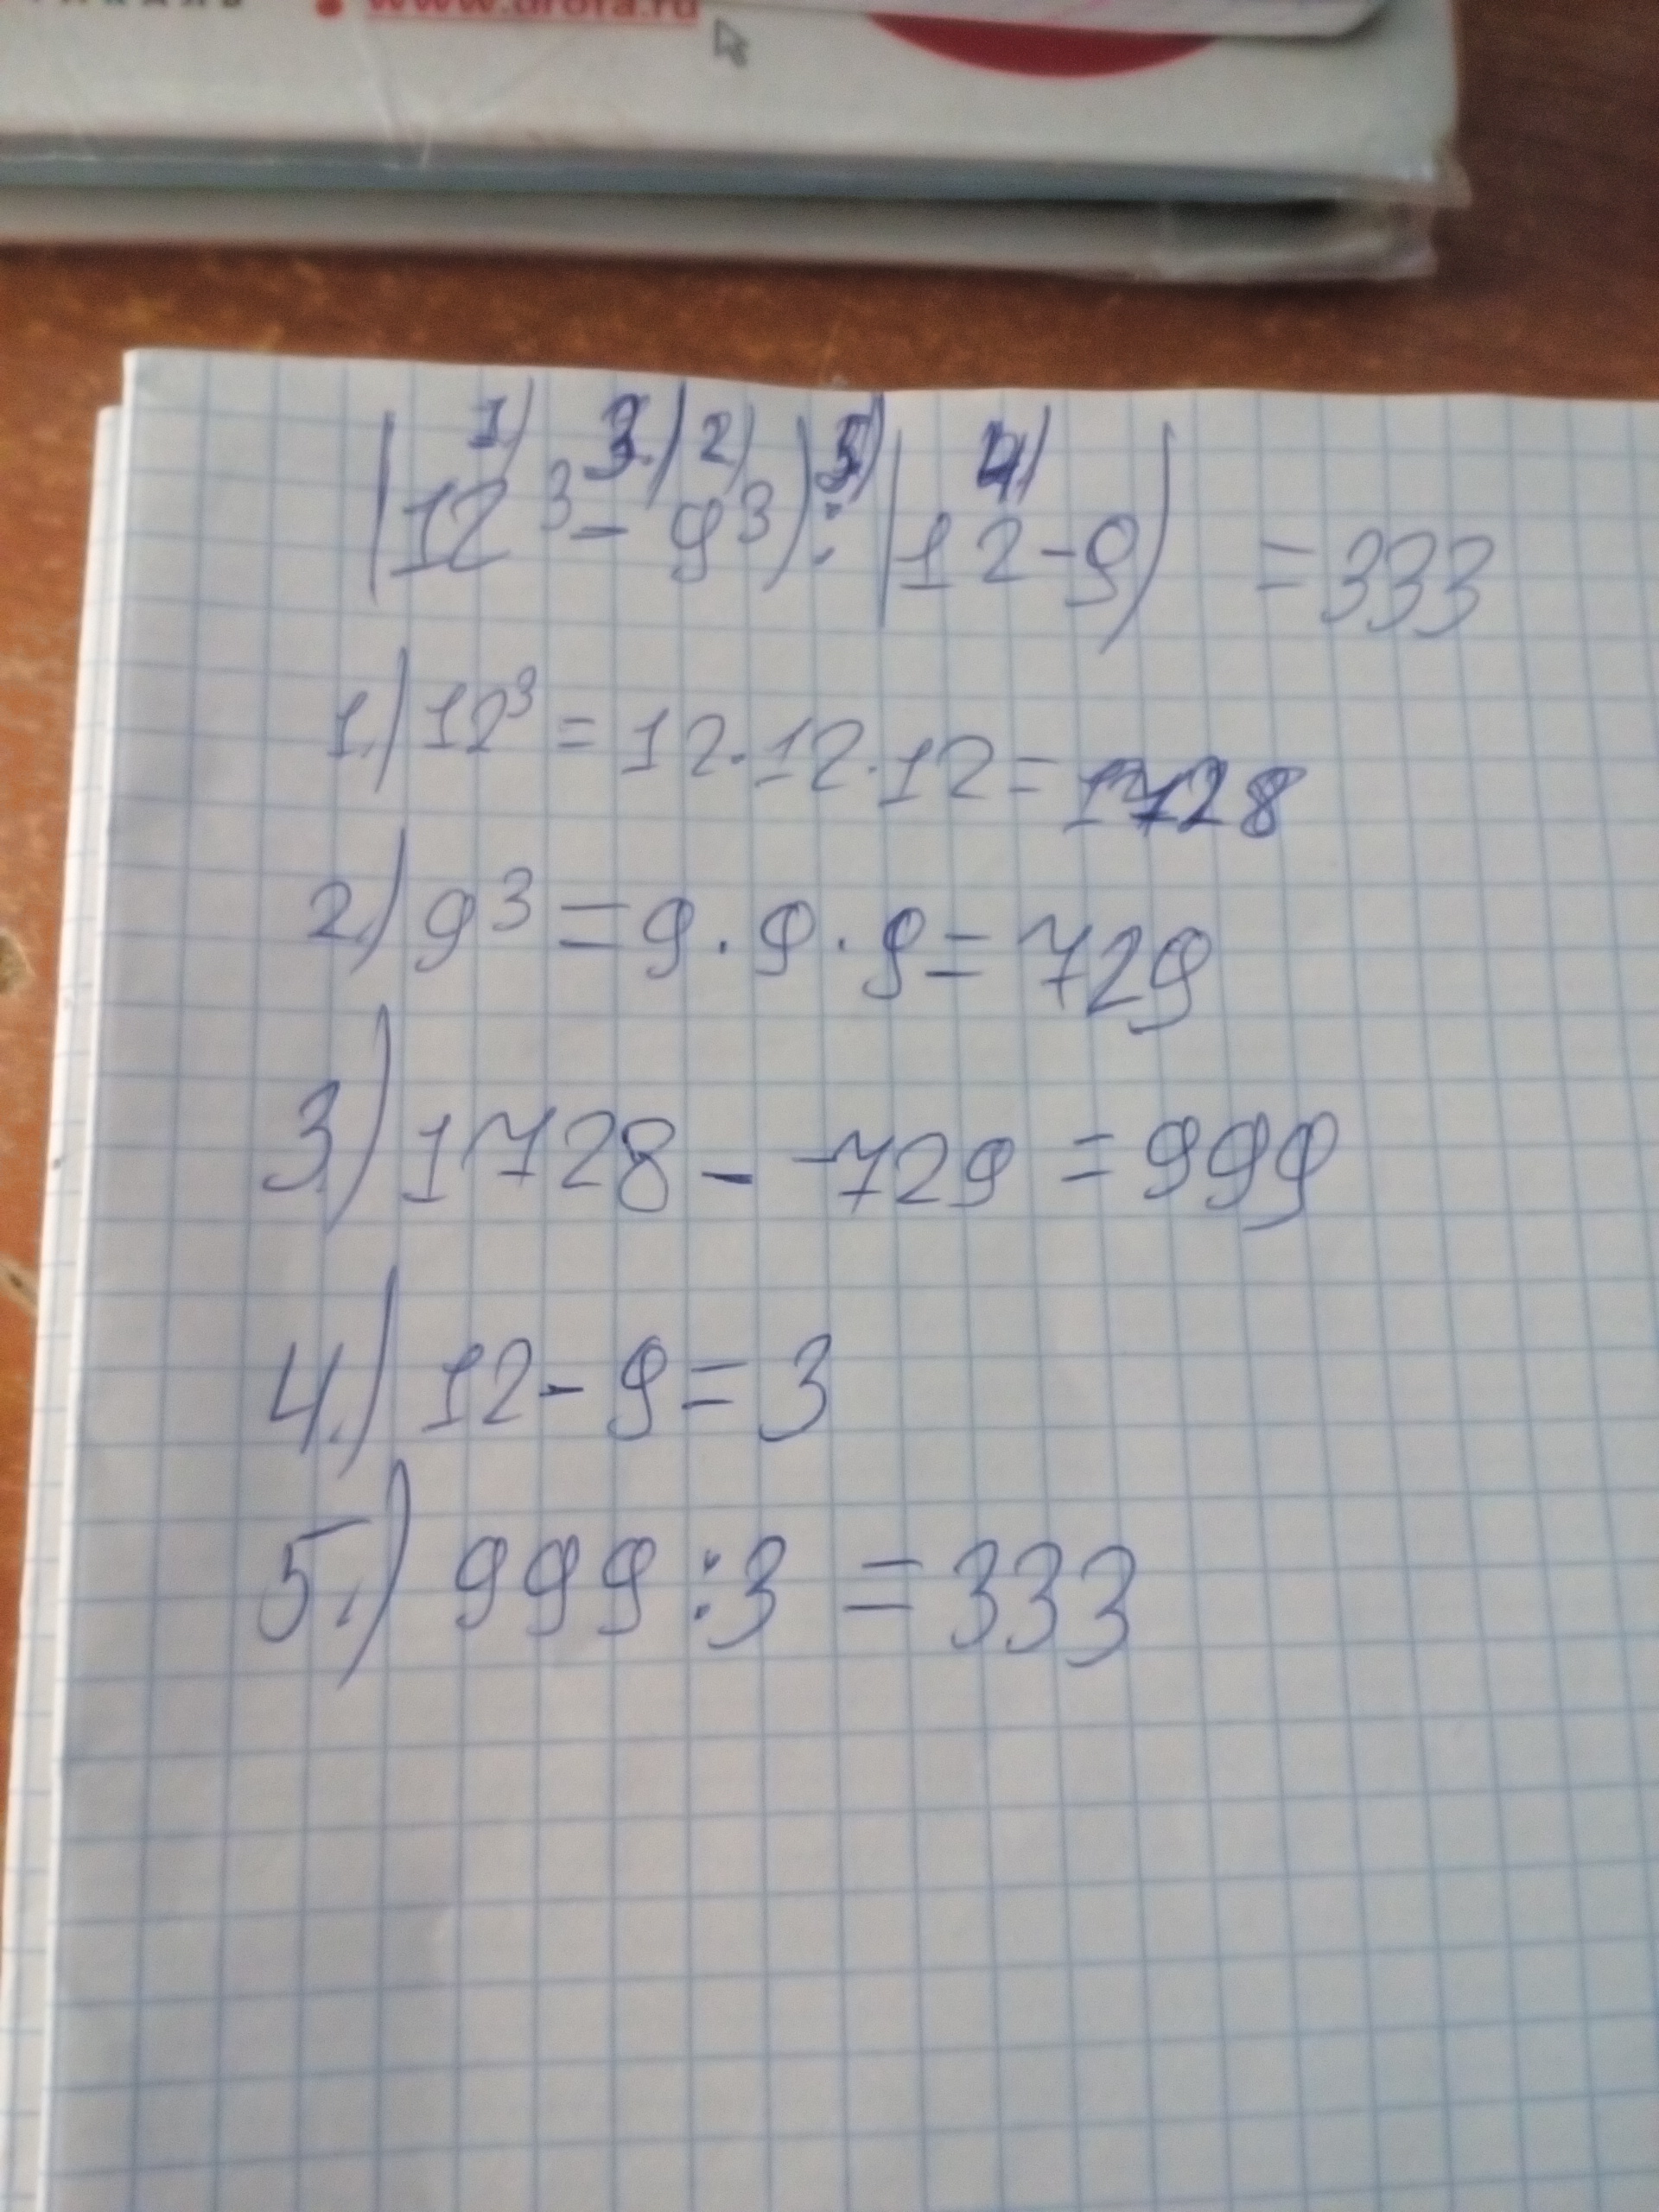 www.drofa.ru
1) 3.) 2) 5) 4)
(12³ - 9³) : (12 - 9) = 333
1.) 12³ = 12 · 12 · 12 = 1728
2.) 9³ = 9 · 9 · 9 = 729
3.) 1728 - 729 = 999
4.) 12 - 9 = 3
5.) 999 : 3 = 333